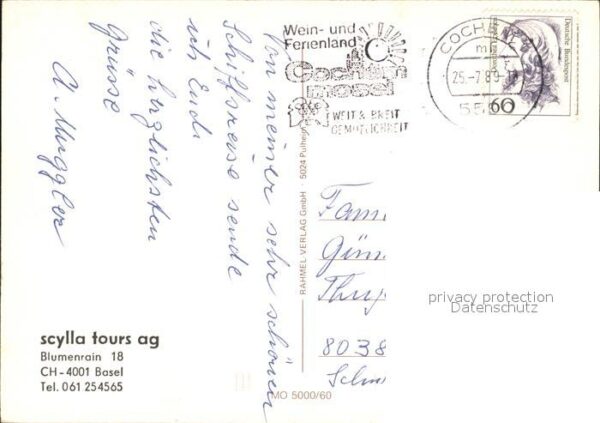 Von meiner sehr schönen
Schiffsreise sende
ich Euch
die herzlichsten
Grüsse
A. Muggler
scylla tours ag
Blumenrain 18
CH-4001 Basel
Tel. 061 254565
Wein- und
Ferienland
Cochem
mosel
WEIT & BREIT
GEMÜTLICHKEIT
COCHEM
25.-7.89
Deutsche Bundespost
60
RAHMEL VERLAG GmbH · 5024 Pulheim
MO 5000/60
Fam.
8038
privacy protection
Datenschutz